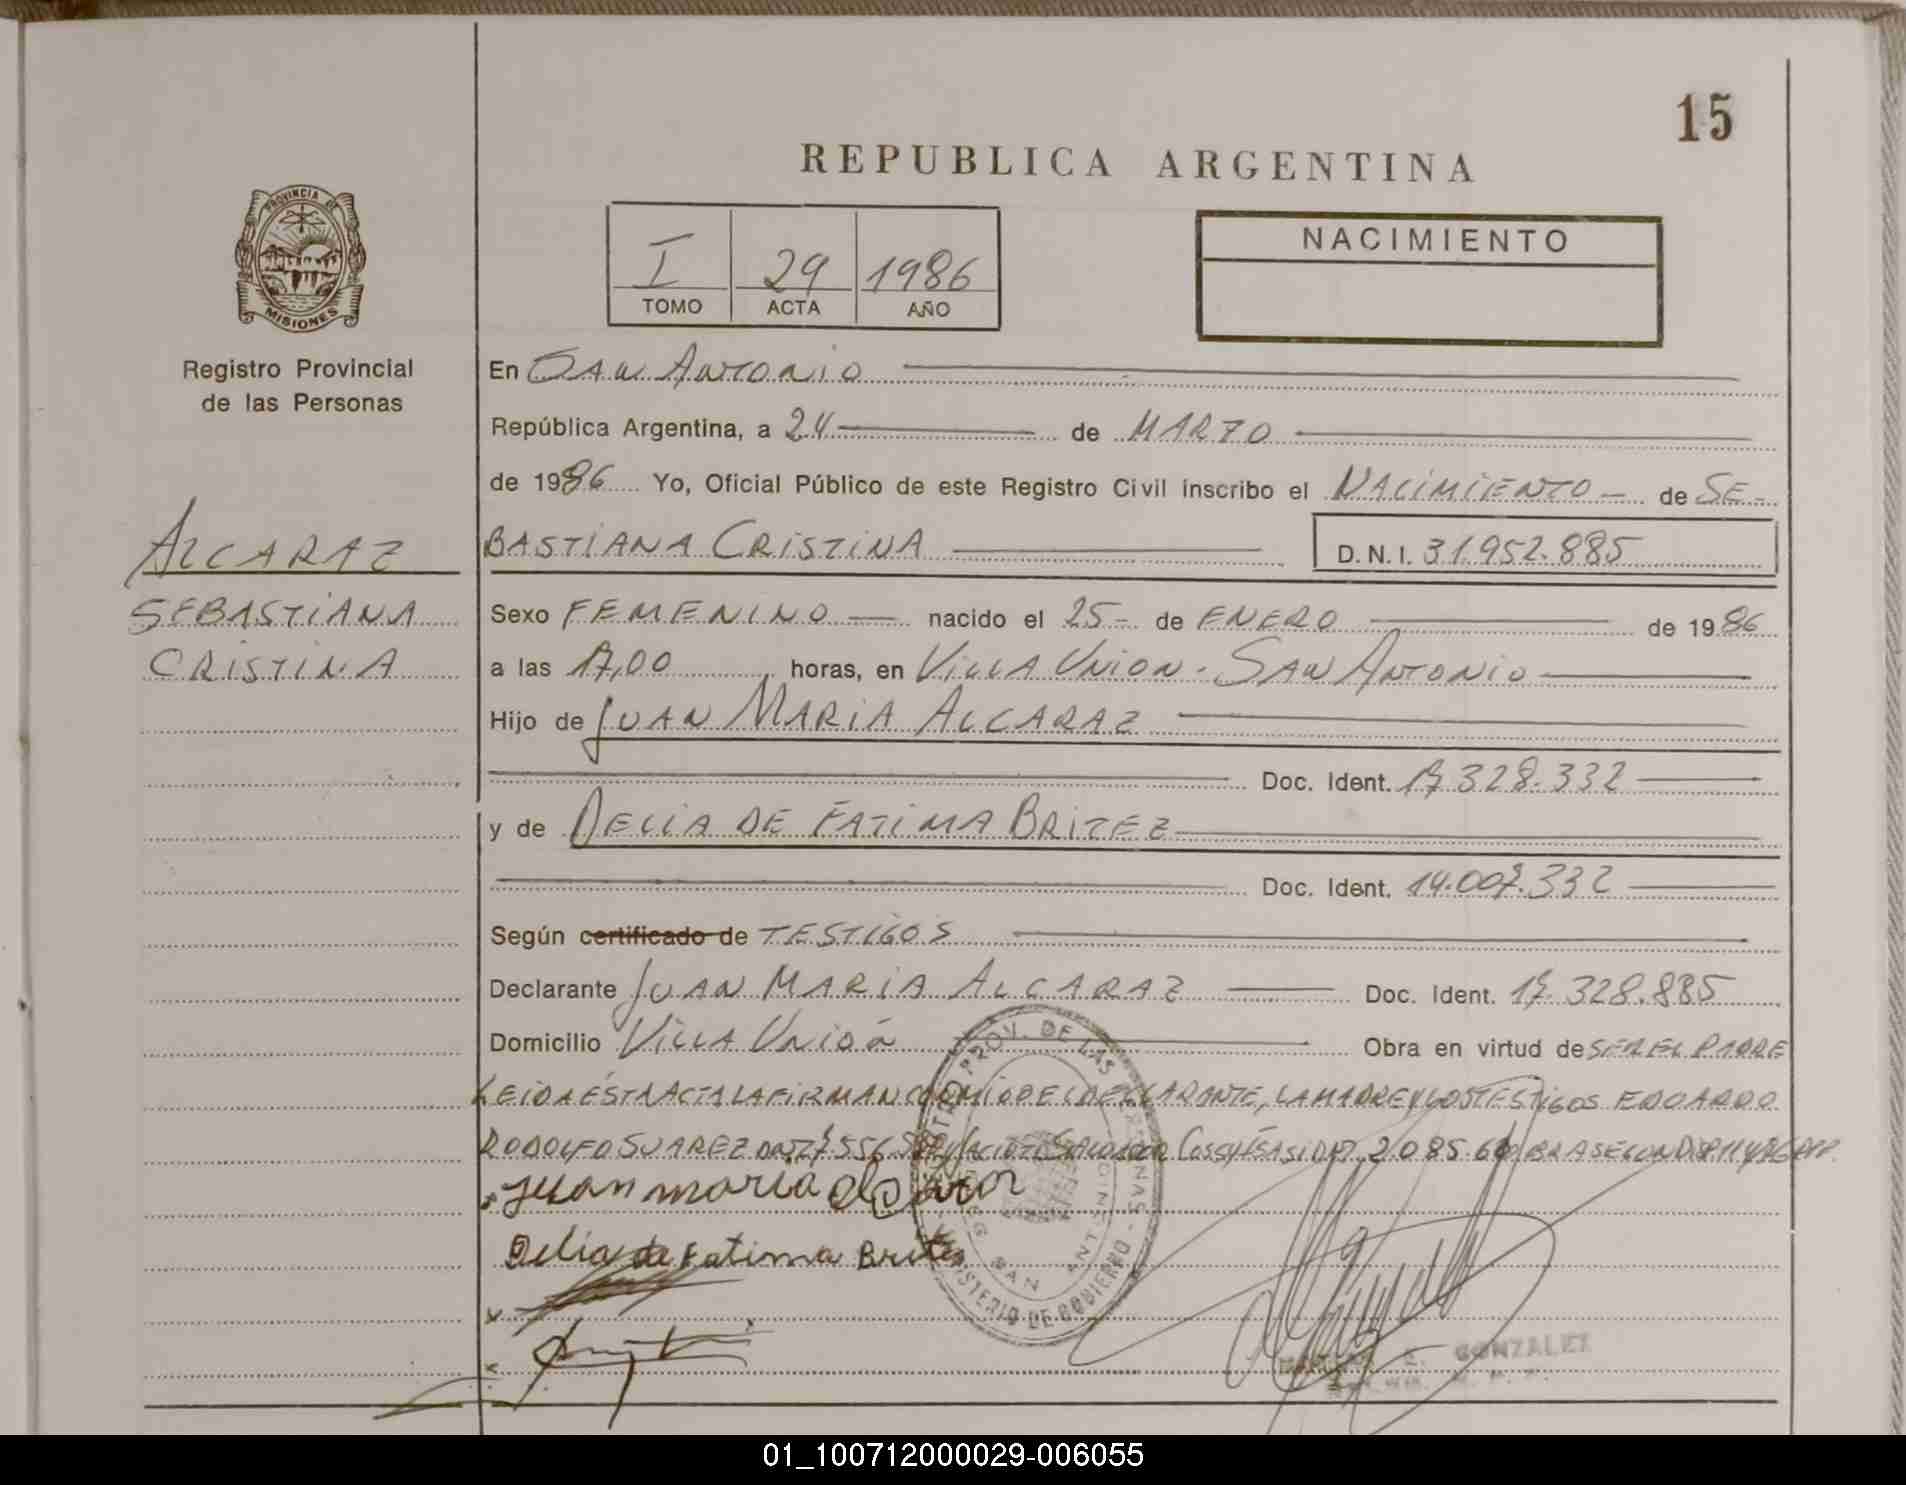 15
REPUBLICA ARGENTINA
PROVINCIA DE
MISIONES
Registro Provincial
de las Personas
I 29 1986
TOMO ACTA AÑO
NACIMIENTO
En SAN ANTONIO
República Argentina, a 24 de MARZO
de 1986 Yo, Oficial Público de este Registro Civil inscribo el NACIMIENTO de SE-
BASTIANA CRISTINA D.N.I. 31.952.885
ALCARAZ
SEBASTIANA
CRISTINA
Sexo FEMENINO nacido el 25 de ENERO de 1986
a las 17,00 horas, en VILLA UNION - SAN ANTONIO
Hijo de JUAN MARIA ALCARAZ
Doc. Ident. 17.328.332
y de DELIA DE FATIMA BRITEZ
Doc. Ident. 14.007.332
Según certificado de TESTIGOS
Declarante JUAN MARIA ALCARAZ Doc. Ident. 17.328.885
Domicilio VILLA UNIÓN Obra en virtud de SER EL PADRE
LEIDA ÉSTA ACTA LA FIRMAN CONMIGO EL DECLARANTE, LA MADRE Y LOS TESTIGOS EDUARDO
RODOLFO SUAREZ
Juan maria alcaraz
Delia de Fatima Britez
PROV. DE LAS PERSONAS
MINISTERIO DE GOBIERNO
SAN ANTONIO
E. GONZALEZ
01_100712000029-006055